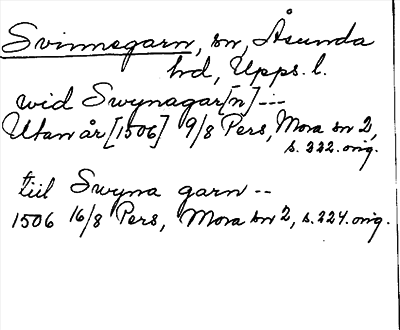 Svinnegarn, sn, Åsunda
hd, Upps. l.
wid Swynagar[n] ---
Utan år [1506] 9/8 Pers, Mora sn 2,
s. 222. orig.
tiil Swyna garn --
1506 16/8 Pers, Mora sn 2, s. 224. orig.